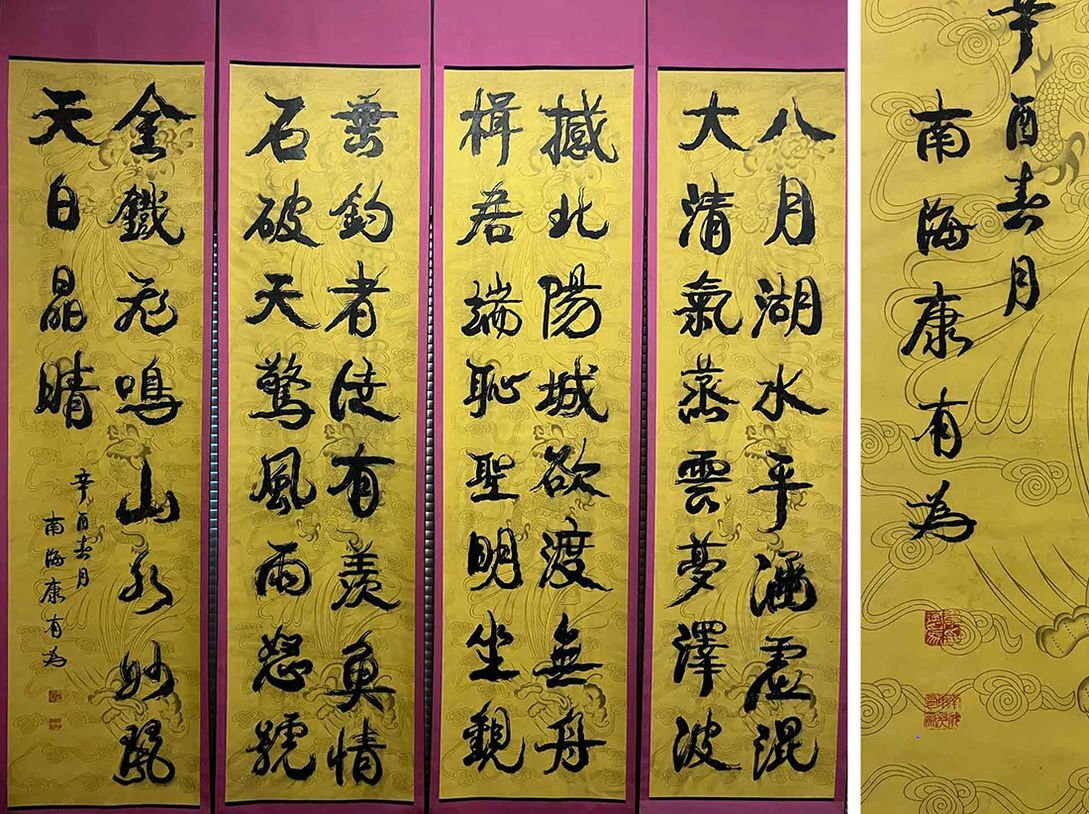 八月湖水平涵虛混
大清氣蒸雲夢澤波
撼北陽城欲渡無舟
楫居端恥聖明坐觀
垂釣者徒有羨魚情
石破天驚風雨怒號
金鐵飛鳴山水妙麗
天白晶晴
辛酉春月
南海康有為
辛酉春月
南海康有為